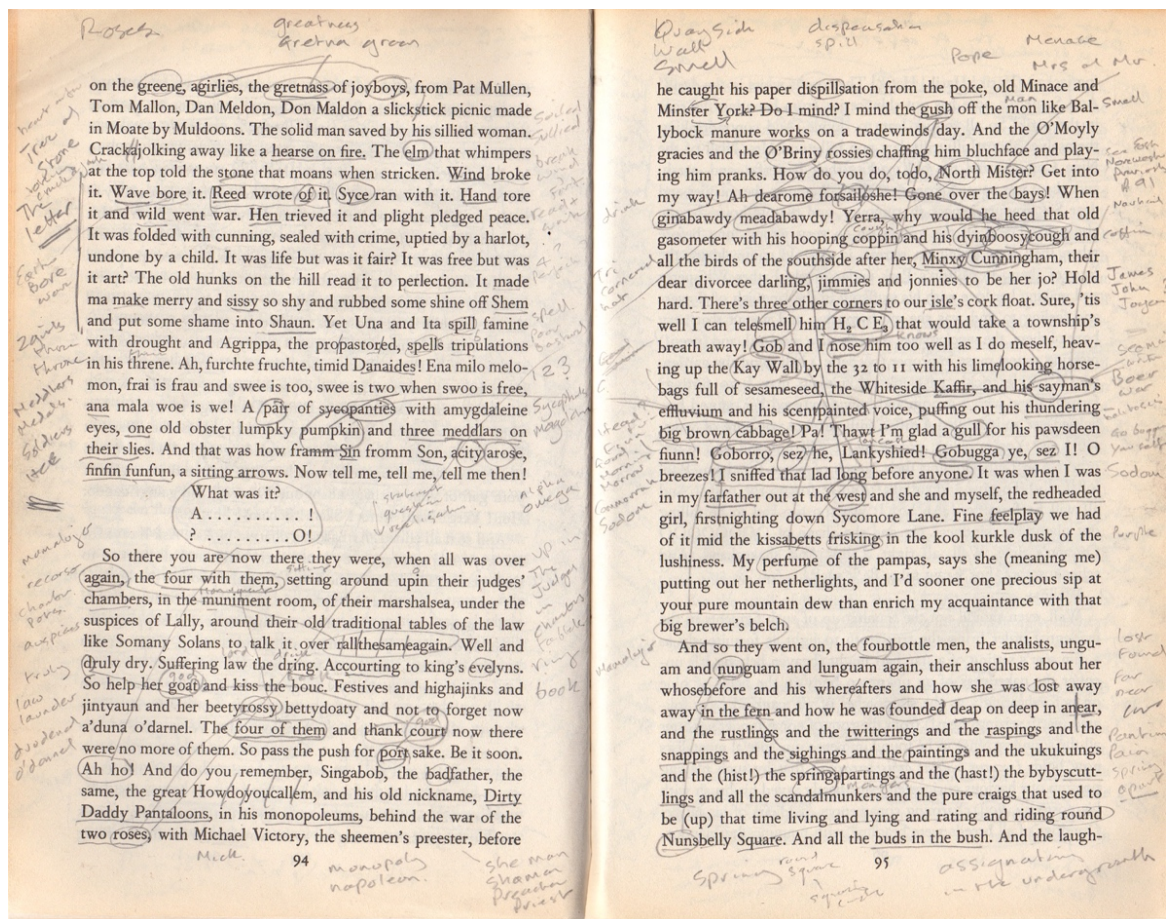 Roses
greatness
Gretna green
on the greene, agirlies, the gretnass of joyboys, from Pat Mullen,
Tom Mallon, Dan Meldon, Don Maldon a slickstick picnic made
in Moate by Muldoons. The solid man saved by his sillied woman.
Crackajolking away like a hearse on fire. The elm that whimpers
at the top told the stone that moans when stricken. Wind broke
it. Wave bore it. Reed wrote of it. Syce ran with it. Hand tore
it and wild went war. Hen trieved it and plight pledged peace.
It was folded with cunning, sealed with crime, uptied by a harlot,
undone by a child. It was life but was it fair? It was free but was
it art? The old hunks on the hill read it to perlection. It made
ma make merry and sissy so shy and rubbed some shine off Shem
and put some shame into Shaun. Yet Una and Ita spill famine
with drought and Agrippa, the propastored, spells tripulations
in his threne. Ah, furchte fruchte, timid Danaides! Ena milo melo-
mon, frai is frau and swee is too, swee is two when swoo is free,
ana mala woe is we! A pair of sycopanties with amygdaleine
eyes, one old obster lumpky pumpkin and three meddlars on
their slies. And that was how framm Sin fromm Son, acity arose,
finfin funfun, a sitting arrows. Now tell me, tell me, tell me then!
What was it?
A . . . . . . . . . . !
? . . . . . . . . . . O!
So there you are now there they were, when all was over
again, the four with them, setting around upin their judges'
chambers, in the muniment room, of their marshalsea, under the
suspices of Lally, around their old traditional tables of the law
like Somany Solans to talk it over rallthesameagain. Well and
druly dry. Suffering law the dring. Accourting to king's evelyns.
So help her goat and kiss the bouc. Festives and highajinks and
jintyaun and her beetyrossy bettydoaty and not to forget now
a'duna o'darnel. The four of them and thank court now there
were no more of them. So pass the push for port sake. Be it soon.
Ah ho! And do you remember, Singabob, the badfather, the
same, the great Howdoyoucallem, and his old nickname, Dirty
Daddy Pantaloons, in his monopoleums, behind the war of the
two roses, with Michael Victory, the sheemen's preester, before
The
letter
Meddlers
Medals.
Soldiers
truly
law
launder
o'donnel
spell
1 2 3
alpha
omega
up in
The
Judges
book
Mick.
94
monopoly
napoleon.
she man
shaman
Preacher
Priest
Quayside
Wall
Smell
dispensation
spill
Pope
Menace
Mrs or Mr.
he caught his paper dispillsation from the poke, old Minace and
Minster York? Do I mind? I mind the gush off the mon like Bal-
lybock manure works on a tradewinds day. And the O'Moyly
gracies and the O'Briny rossies chaffing him bluchface and play-
ing him pranks. How do you do, todo, North Mister? Get into
my way! Ah dearome forsailoshe! Gone over the bays! When
ginabawdy meadabawdy! Yerra, why would he heed that old
gasometer with his hooping coppin and his dyinboosycough and
all the birds of the southside after her, Minxy Cunningham, their
dear divorcee darling, jimmies and jonnies to be her jo? Hold
hard. There's three other corners to our isle's cork float. Sure, 'tis
well I can telesmell him H₂ C E₃ that would take a township's
breath away! Gob and I nose him too well as I do meself, heav-
ing up the Kay Wall by the 32 to 11 with his limelooking horse-
bags full of sesameseed, the Whiteside Kaffir, and his sayman's
effluvium and his scentpainted voice, puffing out his thundering
big brown cabbage! Pa! Thawt I'm glad a gull for his pawsdeen
fiunn! Goborro, sez he, Lankyshied! Gobugga ye, sez I! O
breezes! I sniffed that lad long before anyone. It was when I was
in my farfather out at the west and she and myself, the redheaded
girl, firstnighting down Sycomore Lane. Fine feelplay we had
of it mid the kissabetts frisking in the kool kurkle dusk of the
lushiness. My perfume of the pampas, says she (meaning me)
putting out her netherlights, and I'd sooner one precious sip at
your pure mountain dew than enrich my acquaintance with that
big brewer's belch.
And so they went on, the fourbottle men, the analists, ungu-
am and nunguam and lunguam again, their anschluss about her
whosebefore and his whereafters and how she was lost away
away in the fern and how he was founded deap on deep in anear,
and the rustlings and the twitterings and the raspings and the
snappings and the sighings and the paintings and the ukukuings
and the (hist!) the springapartings and the (hast!) the bybyscutt-
lings and all the scandalmunkers and the pure craigs that used to
be (up) that time living and lying and rating and riding round
Nunsbelly Square. And all the buds in the bush. And the laugh-
Small
James
John
Boer
War
Sodom
lost
found
far
near
Spring
apart
Spring
round
square
95
assignating
in the undergrowth